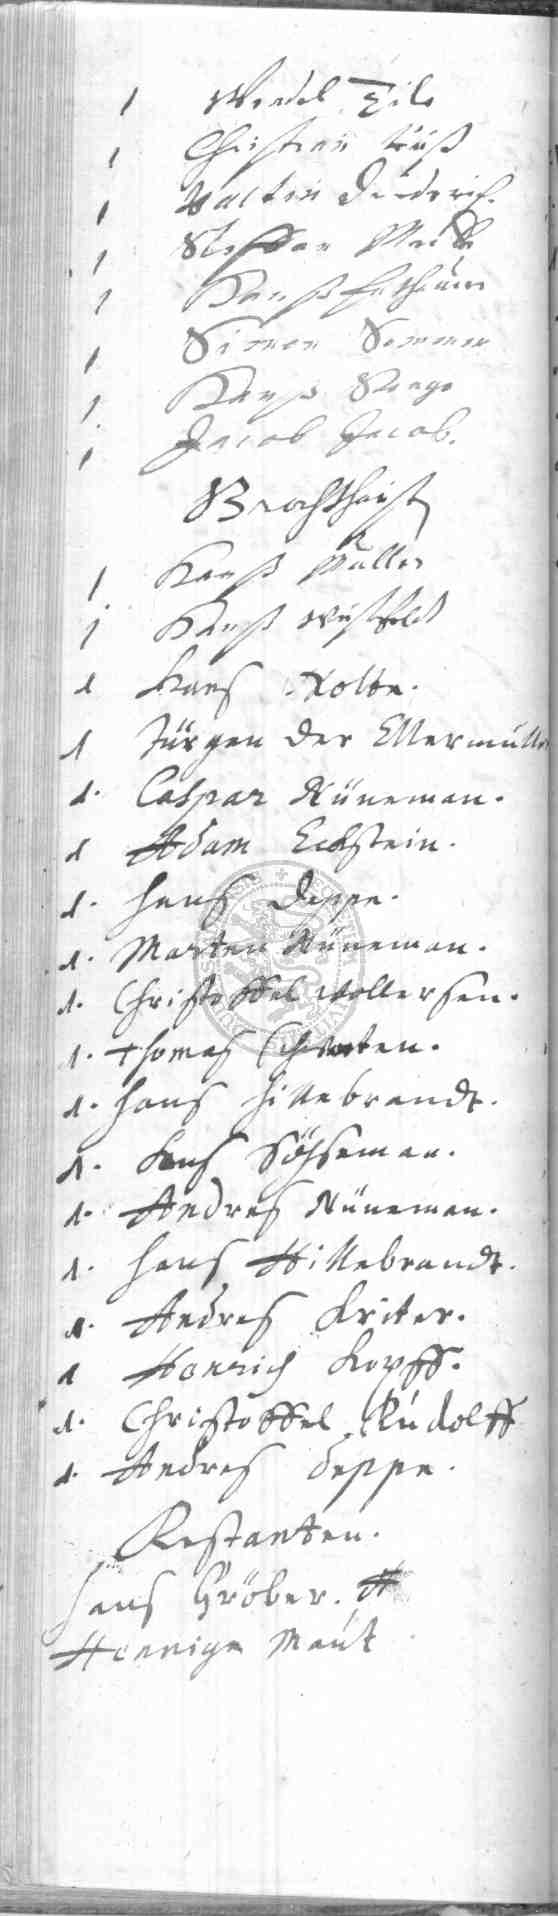 1 Wendel Zile
1 Christian Kuß
1 Valtin Diederich
1 Steffan
1 Hanß
1 Simon Sommer
1 Hanß Runge
1 Jacob Jacob.
Brochthaußen
1 Hanß Müller
1 Hanß Wüstefeldt
1 Hans Nolte.
1 Jürgen der Ellermüller
1. Caspar Nüneman.
1 Adam Eckstein.
1. Hans Deppe.
1. Marten Nüneman.
1. Christoffel Wollersen.
1. Thomas
1. Hans Hillebrandt.
1. Hans Söhseman.
1. Andres Nüneman.
1. Hans Hillebrandt.
1. Andres Kriter.
1 Henrich Kopff.
1. Christoffel Rudolff
1. Andres Deppe.
Restanten.
Hans Gröber.
Hennige Maut